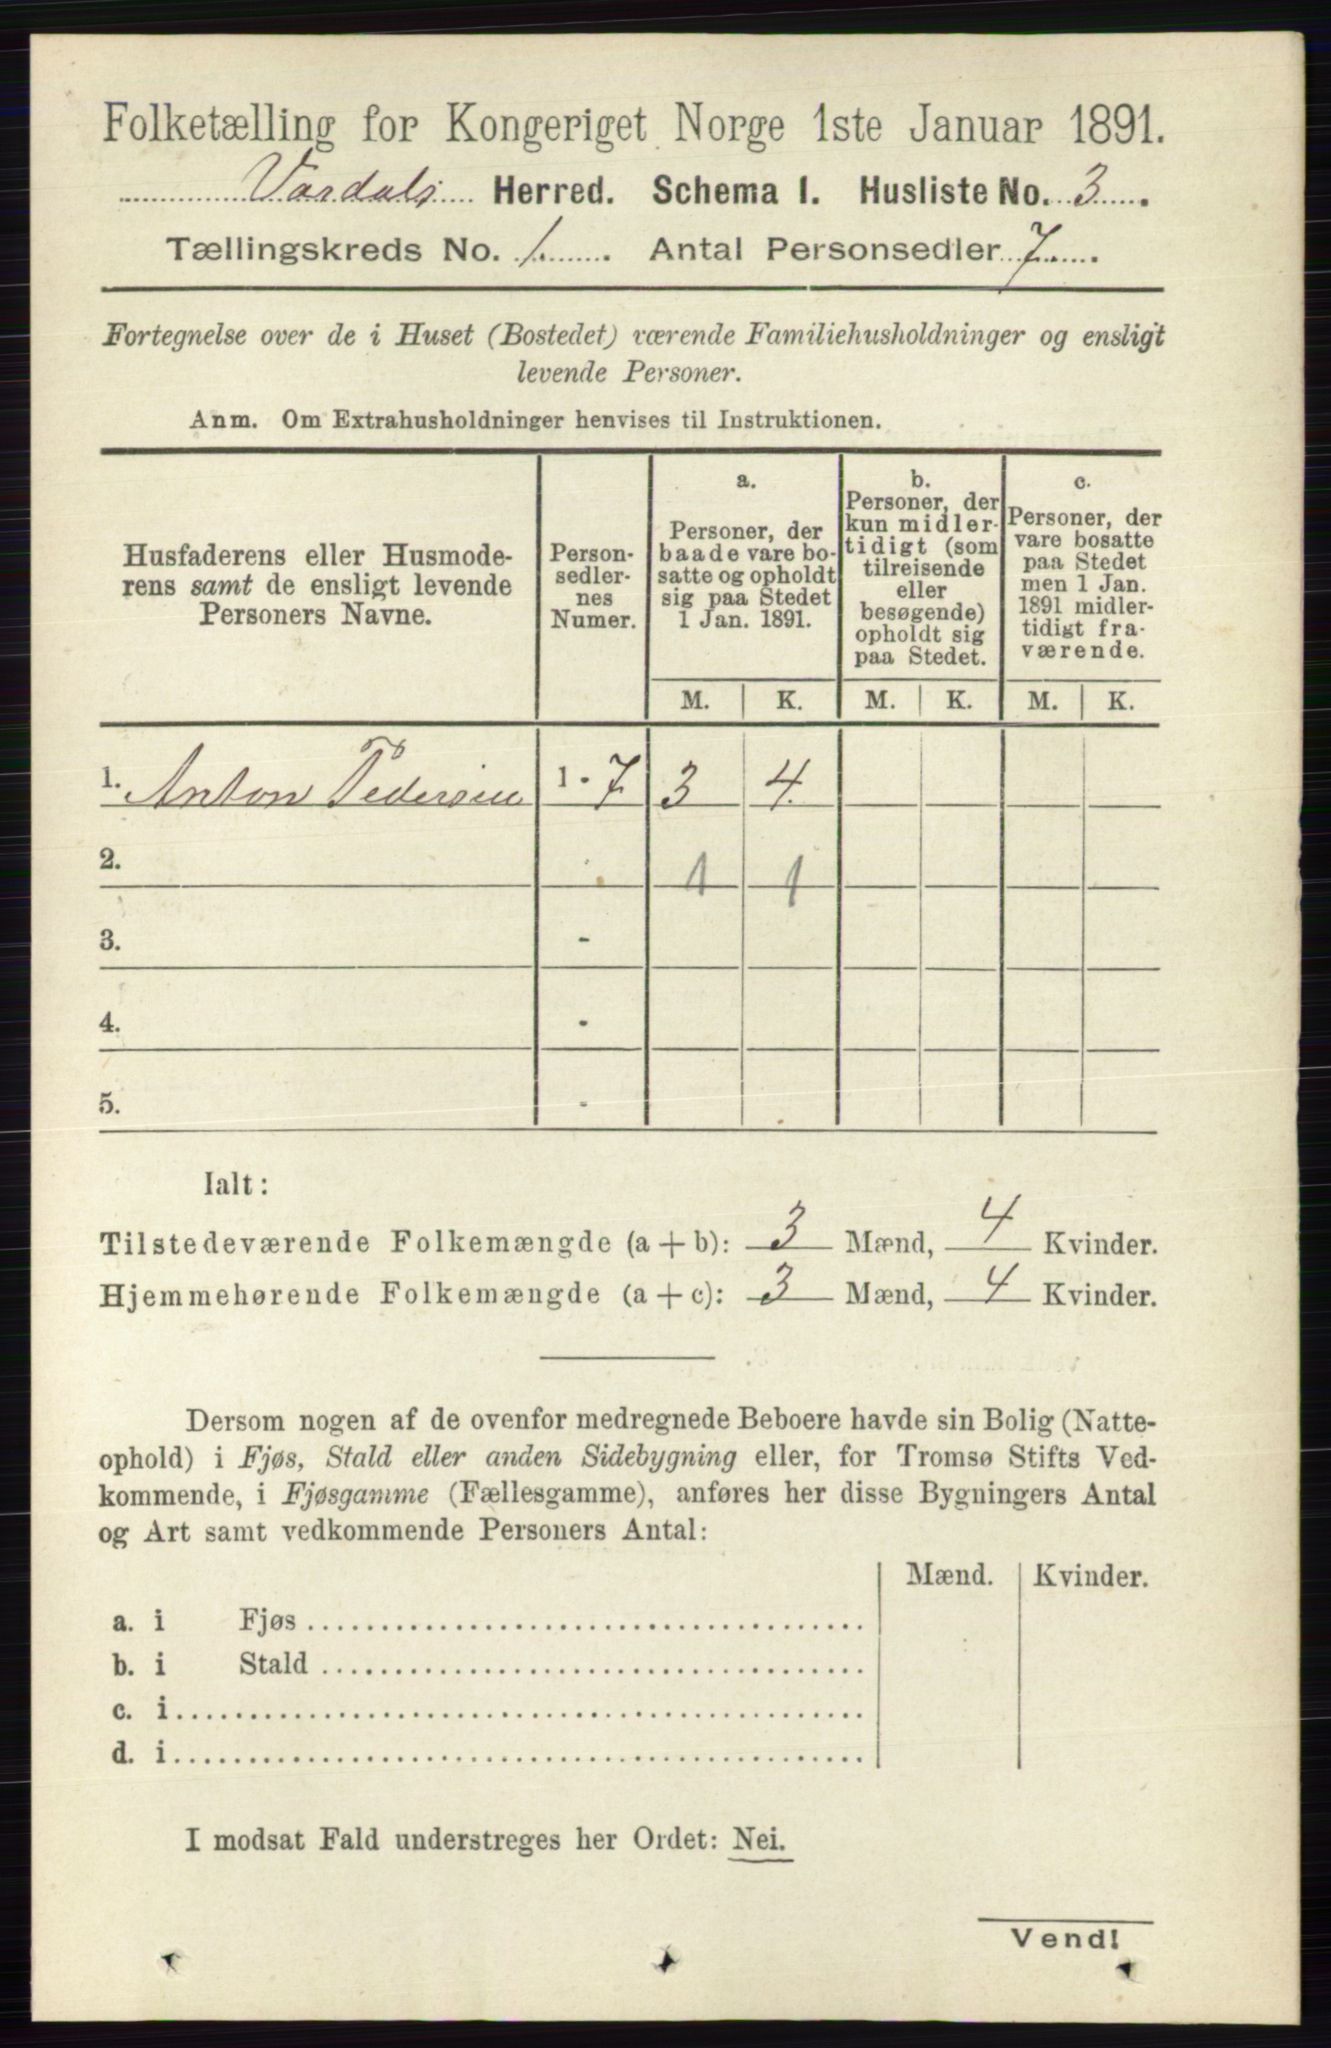 Folketælling for Kongeriget Norge 1ste Januar 1891.
Vardals Herred. Schema 1. Husliste No. 3
Tællingskreds No. 1. Antal Personsedler 7
Fortegnelse over de i Huset (Bostedet) værende Familiehusholdninger og ensligt
levende Personer.
Anm. Om Extrahusholdninger henvises til Instruktionen.
Husfaderens eller Husmode-
rens samt de ensligt levende
Personers Navne.
Person-
sedler-
nes
Numer.
a.
Personer, der
baade vare bo-
satte og opholdt
sig paa Stedet
1 Jan. 1891.
b.
Personer, der
kun midler-
tidigt (som
tilreisende
eller
besøgende)
opholdt sig
paa Stedet.
c.
Personer, der
vare bosatte
paa Stedet
men 1 Jan.
1891 midler-
tidigt fra-
værende.
M. K. M. K. M. K.
1. Anton Pedersen 1 - 7 3 4
2. 1 1
3. -
4. -
5. -
Ialt:
Tilstedeværende Folkemængde (a + b): 3 Mænd, 4 Kvinder.
Hjemmehørende Folkemængde (a + c): 3 Mænd, 4 Kvinder.
Dersom nogen af de ovenfor medregnede Beboere havde sin Bolig (Natte-
ophold) i Fjøs, Stald eller anden Sidebygning eller, for Tromsø Stifts Ved-
kommende, i Fjøsgamme (Fællesgamme), anføres her disse Bygningers Antal
og Art samt vedkommende Personers Antal:
Mænd. Kvinder.
a. i Fjøs
b. i Stald
c. i
d. i
I modsat Fald understreges her Ordet: Nei.
Vend!